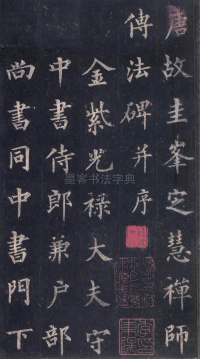 唐故圭峯定慧禪師
傳法碑并序
金紫光禄大夫守
中書侍郎兼户部
尚書同中書門下
墨客书法字典